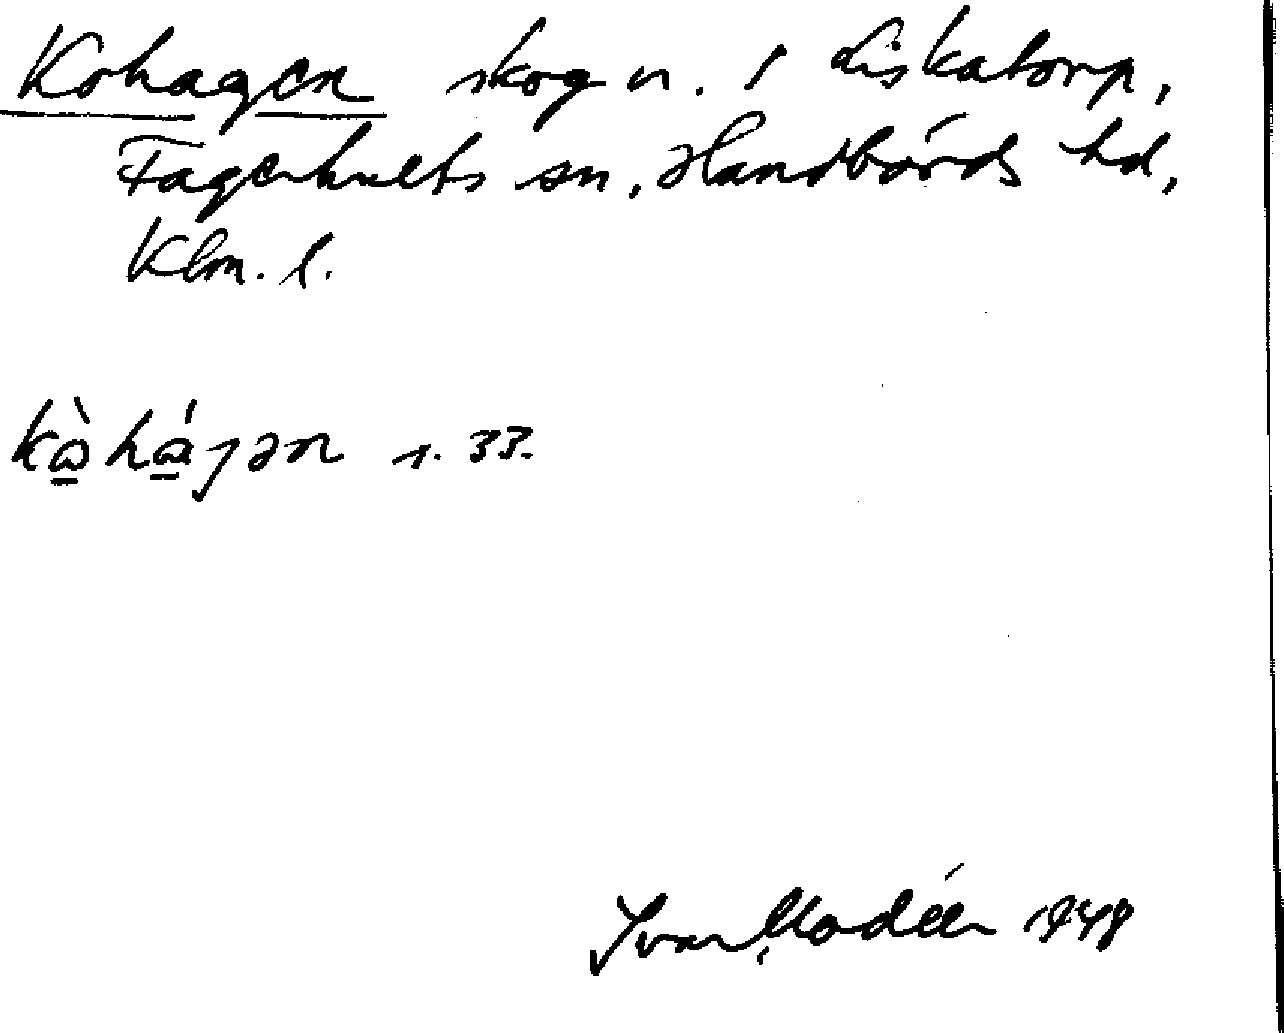 Kohagen skog n. i Liskatorp,
Fagerhults sn, Handbörds hd,
Klm. l.
kòhágən s. 33.
Ivar Modéer 1948